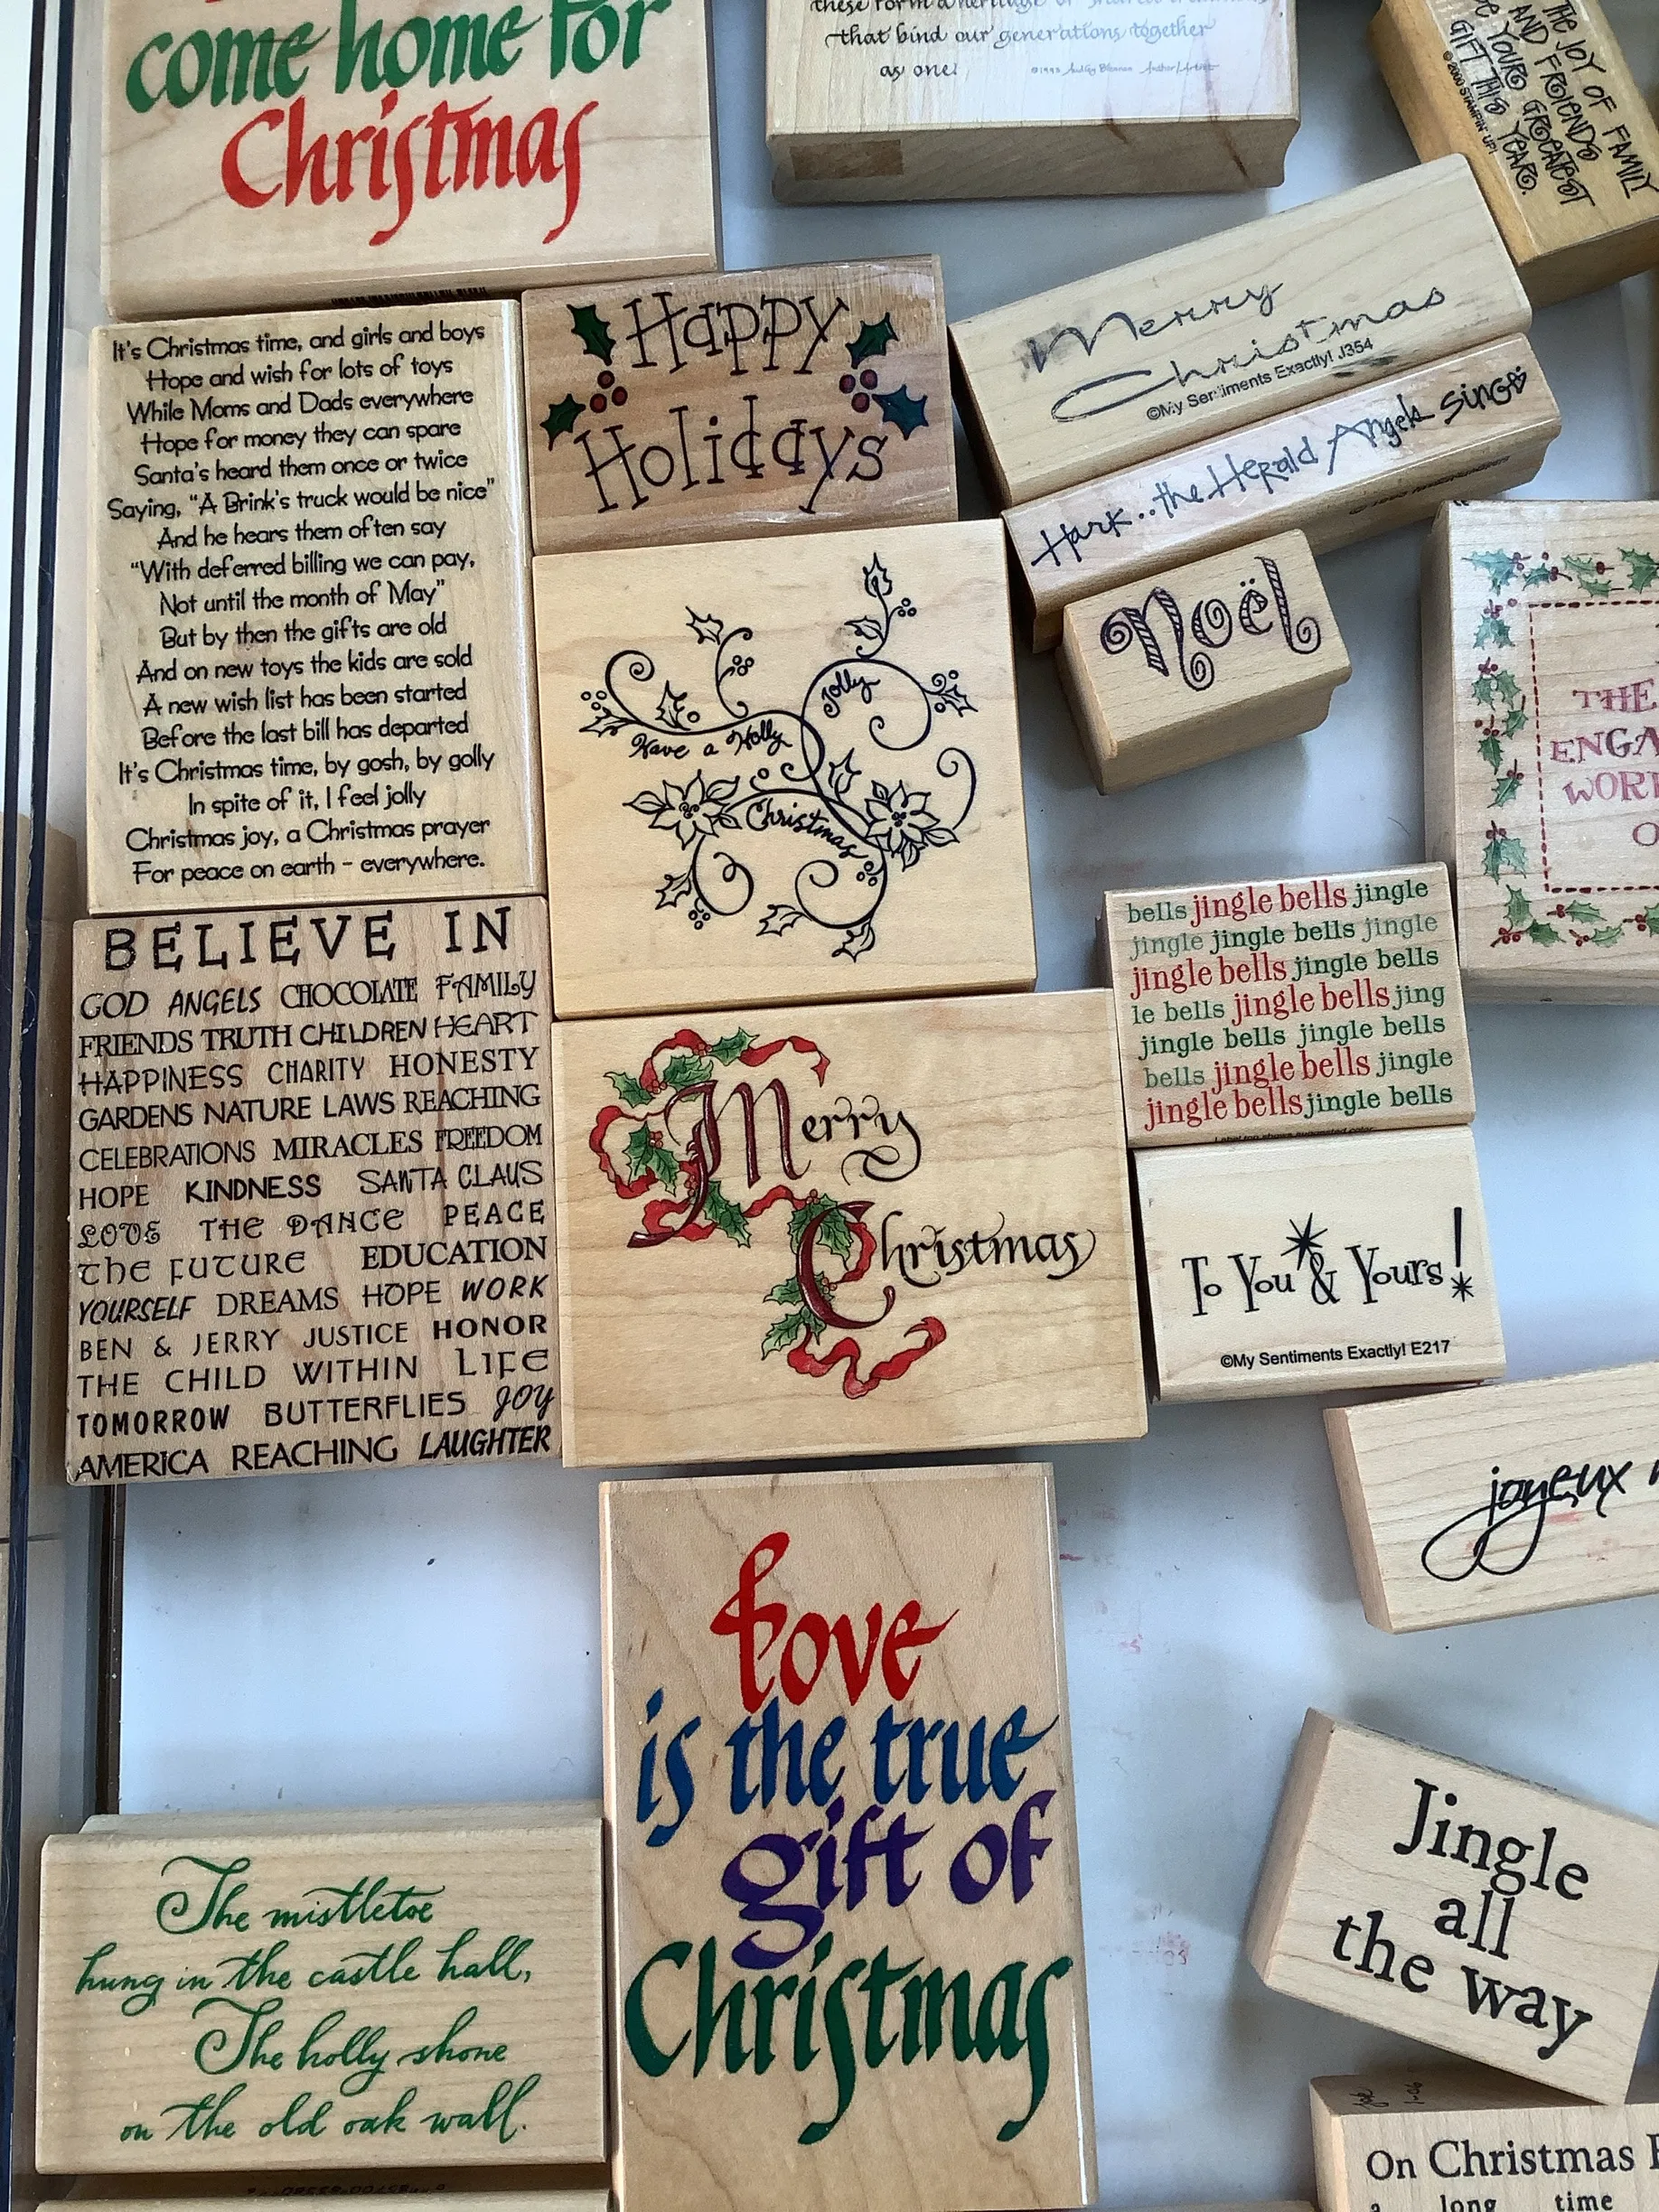 come home for
Christmas
that bind our generations together
as one!
THE JOY OF FAMILY
AND FRIENDS
BE YOUR GREATEST
GIFT THIS YEAR.
©2000 STAMPIN' UP!
It's Christmas time, and girls and boys
Hope and wish for lots of toys
While Moms and Dads everywhere
Hope for money they can spare
Santa's heard them once or twice
Saying, "A Brink's truck would be nice"
And he hears them often say
"With deferred billing we can pay,
Not until the month of May"
But by then the gifts are old
And on new toys the kids are sold
A new wish list has been started
Before the last bill has departed
It's Christmas time, by gosh, by golly
In spite of it, I feel jolly
Christmas joy, a Christmas prayer
For peace on earth - everywhere.
Happy
Holidays
Merry
Christmas
©My Sentiments Exactly! J354
Hark..the Herald Angels Sing
Noël
Have a Holly
Jolly
Christmas
THE
ENGA
WOR
O
BELIEVE IN
GOD ANGELS CHOCOLATE FAMILY
FRIENDS TRUTH CHILDREN HEART
HAPPINESS CHARITY HONESTY
GARDENS NATURE LAWS REACHING
CELEBRATIONS MIRACLES FREEDOM
HOPE KINDNESS SANTA CLAUS
LOVE THE DANCE PEACE
THE FUTURE EDUCATION
YOURSELF DREAMS HOPE WORK
BEN & JERRY JUSTICE HONOR
THE CHILD WITHIN LIFE
TOMORROW BUTTERFLIES JOY
AMERICA REACHING LAUGHTER
Merry
Christmas
bells jingle bells jingle
jingle jingle bells jingle
jingle bells jingle bells
le bells jingle bells jing
jingle bells jingle bells
bells jingle bells jingle
jingle bells jingle bells
To You & Yours!
©My Sentiments Exactly! E217
joyeux
Love
is the true
gift of
Christmas
The mistletoe
hung in the castle hall,
The holly shone
on the old oak wall.
Jingle
all
the way
On Christmas
a long time